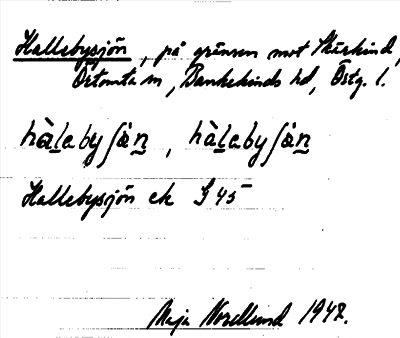 Hallebysjön, på gränsen mot Skärkind,
Örtomta sn, Bankekinds hd, Östg. l.
hàlebyʃän, hàlebyʃän
Hallebysjön ek S 45
Maja Nordlund 1947.